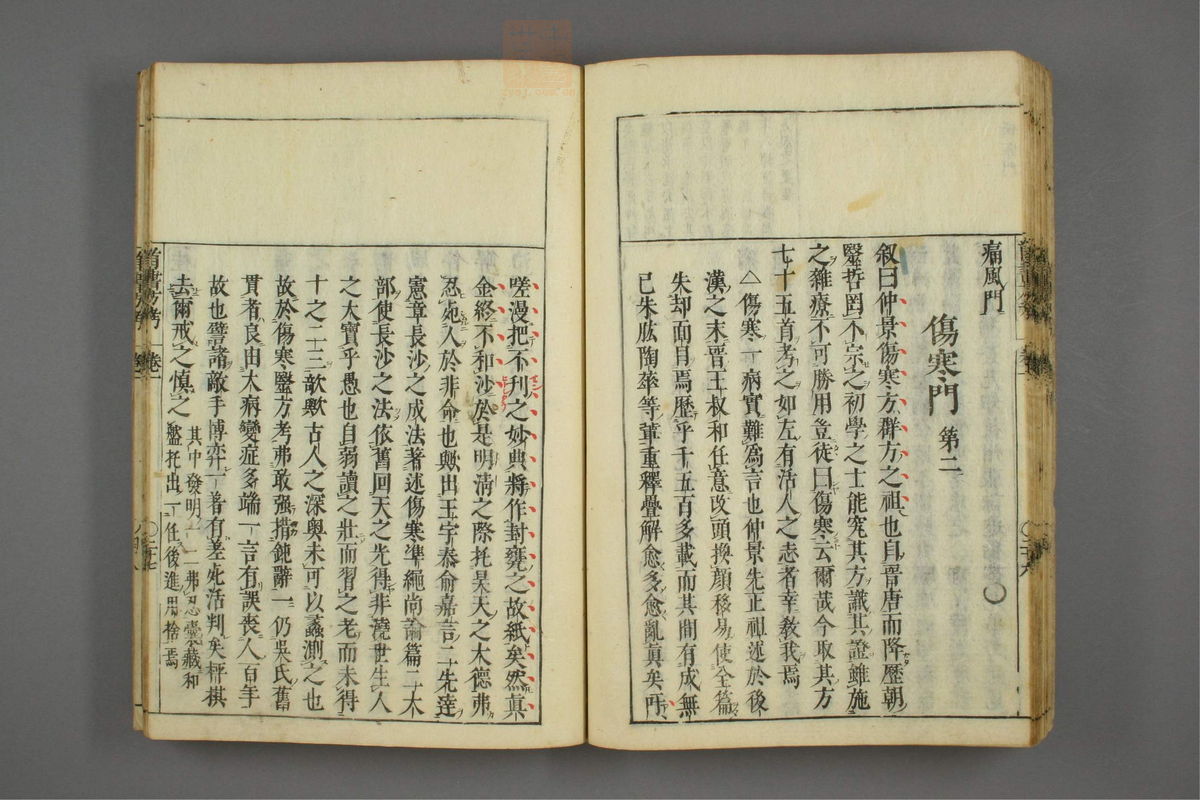 痛風門
傷寒門 第二
叙曰仲景傷寒方群方之祖也自晋唐而降歷朝
毉哲罔不宗之初學之士能究其方識其證雖施
之雜療不可勝用豈徒曰傷寒云爾哉今取其方
七十五首考之如左有活人之志者幸敎我焉
△傷寒一病實難爲言也仲景先正祖述於後
漢之末晋王叔和任意改頭換顔移易使全篇
失却面目焉歷乎千五百多載而其間有成無
已朱肱陶華等輩重釋疊解愈多愈亂眞矣吁
嗟漫把不刋之妙典將作封甕之故紙矣然眞
金終不和沙於是明淸之際托昊天之大德弗
忍死人於非命也歟出王宇泰俞嘉言二先逹
憲章長沙之成法著述傷寒準繩尚論篇二大
部使長沙之法依舊回天之先得非澆世生人
之大寶乎愚也自弱讀之壯而習之老而未得
十之二三歆歟古人之深奥未可以蠡測之也
故於傷寒毉方考弗敢强措鈍辭一仍吳氏舊
貫者良由大病變症多端一言有誤喪人百年
故也譬諸敵手博弈一著有差死活判矣枰棋
去爾戒之愼之
其中發明一一弗忍囊藏和
盤托出一任後進用捨焉